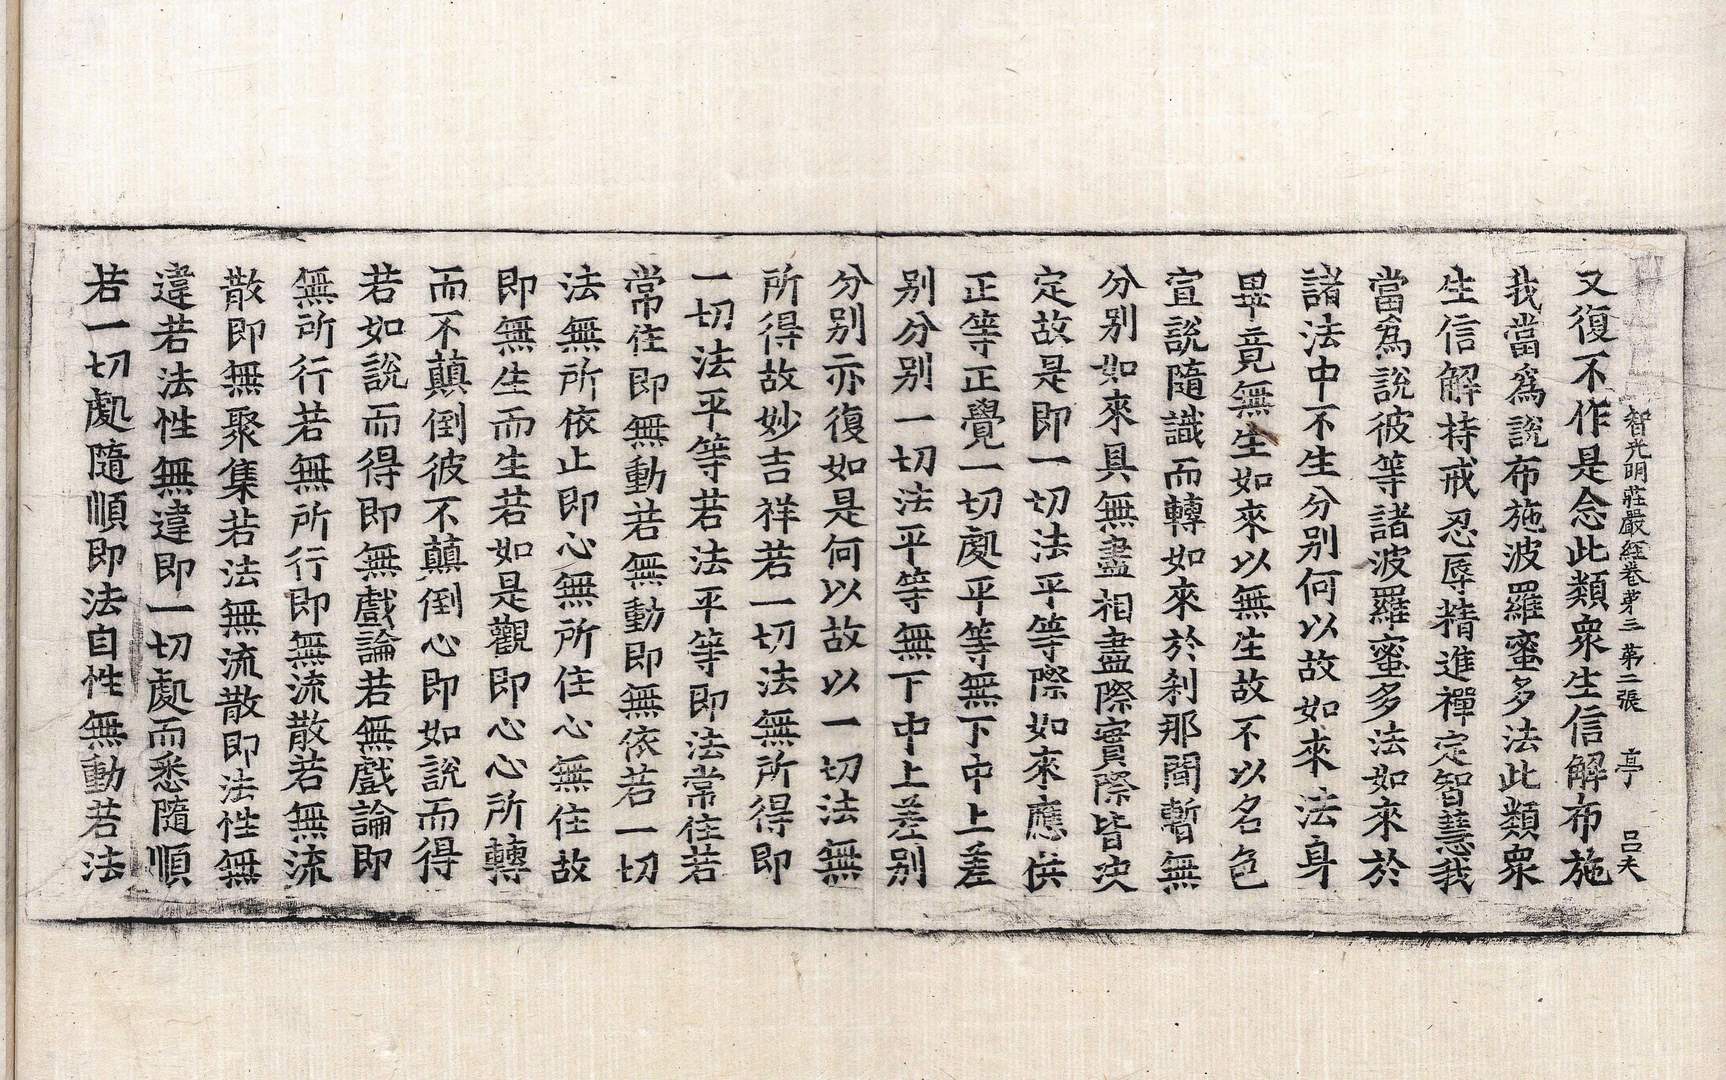 智光明莊嚴經卷第三 第二張 亭 呂夫
又復不作是念此類衆生信解布施
我當爲說布施波羅蜜多法此類衆
生信解持戒忍辱精進禪定智慧我
當爲說彼等諸波羅蜜多法如來於
諸法中不生分別何以故如來法身
畢竟無生如來以無生故不以名色
宣說隨識而轉如來於刹那間暫無
分別如來具無盡相盡際實際皆決
定故是即一切法平等際如來應供
正等正覺一切處平等無下中上差
別分別一切法平等無下中上差別
分別亦復如是何以故以一切法無
所得故妙吉祥若一切法無所得即
一切法平等若法平等即法常住若
常住即無動若無動即無依若一切
法無所依止即心無所住心無住故
即無生而生若如是觀即心心所轉
而不顚倒彼不顚倒心即如說而得
若如說而得即無戲論若無戲論即
無所行若無所行即無流散若無流
散即無聚集若法無流散即法性無
違若法性無違即一切處而悉隨順
若一切處隨順即法自性無動若法